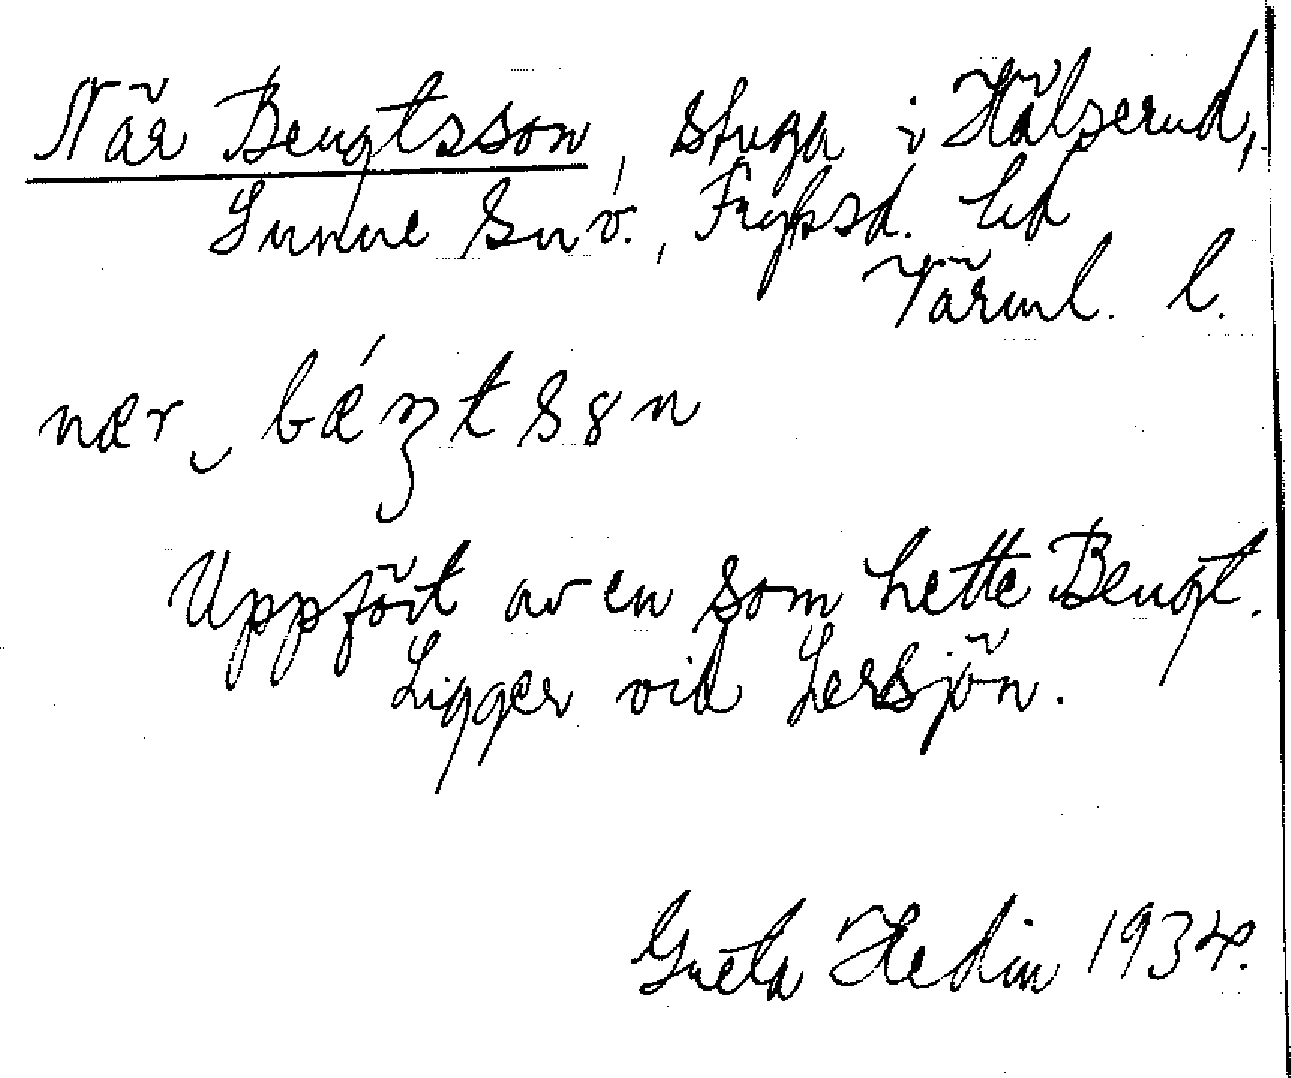 När Bengtsson, stuga i Hälserud,
Sunne sn v., Fryksd. hd
Värml. l.
nær‿bǽŋtsȣn
Uppfört av en som hette Bengt.
Ligger vid Lersjön.
Greta Hedin 1934.